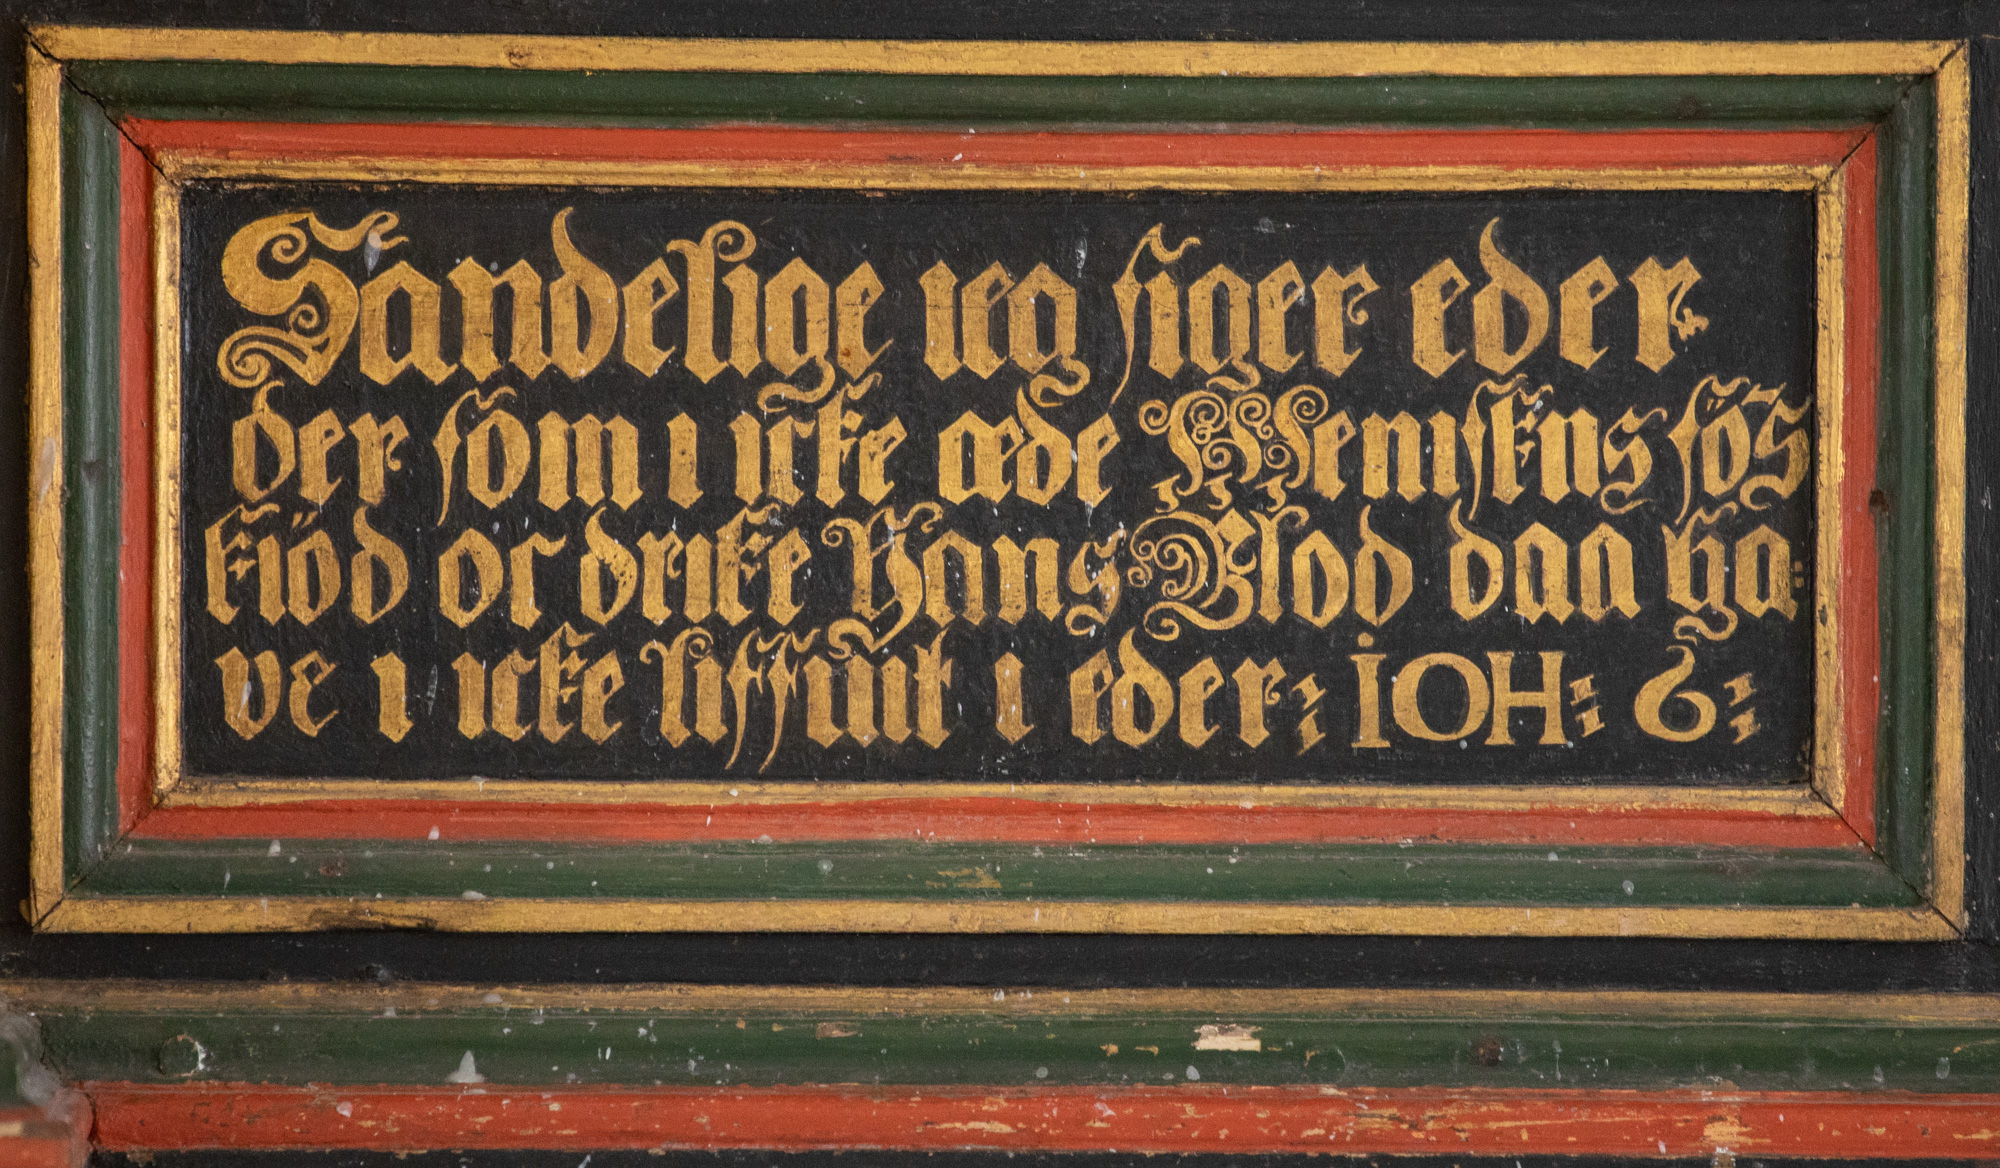 Sandelige ieg siger eder
der som i icke æde Menniskens söŝ
kiöd oc dricke Hans Blod daa ha=
ve i icke liffuit i eder: IOH: 6: